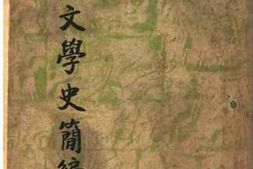 文學史簡編